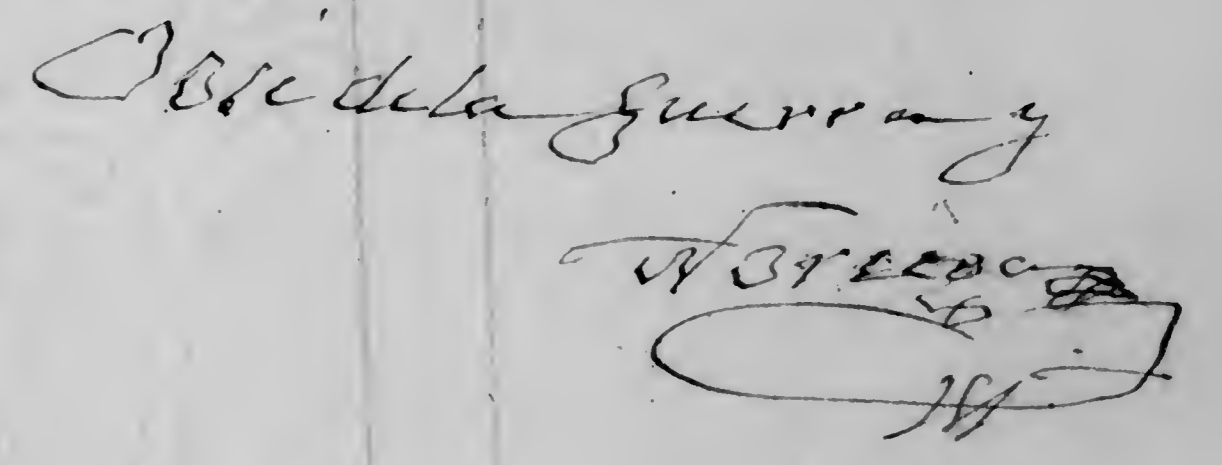 José de la Guerra y
Noriega